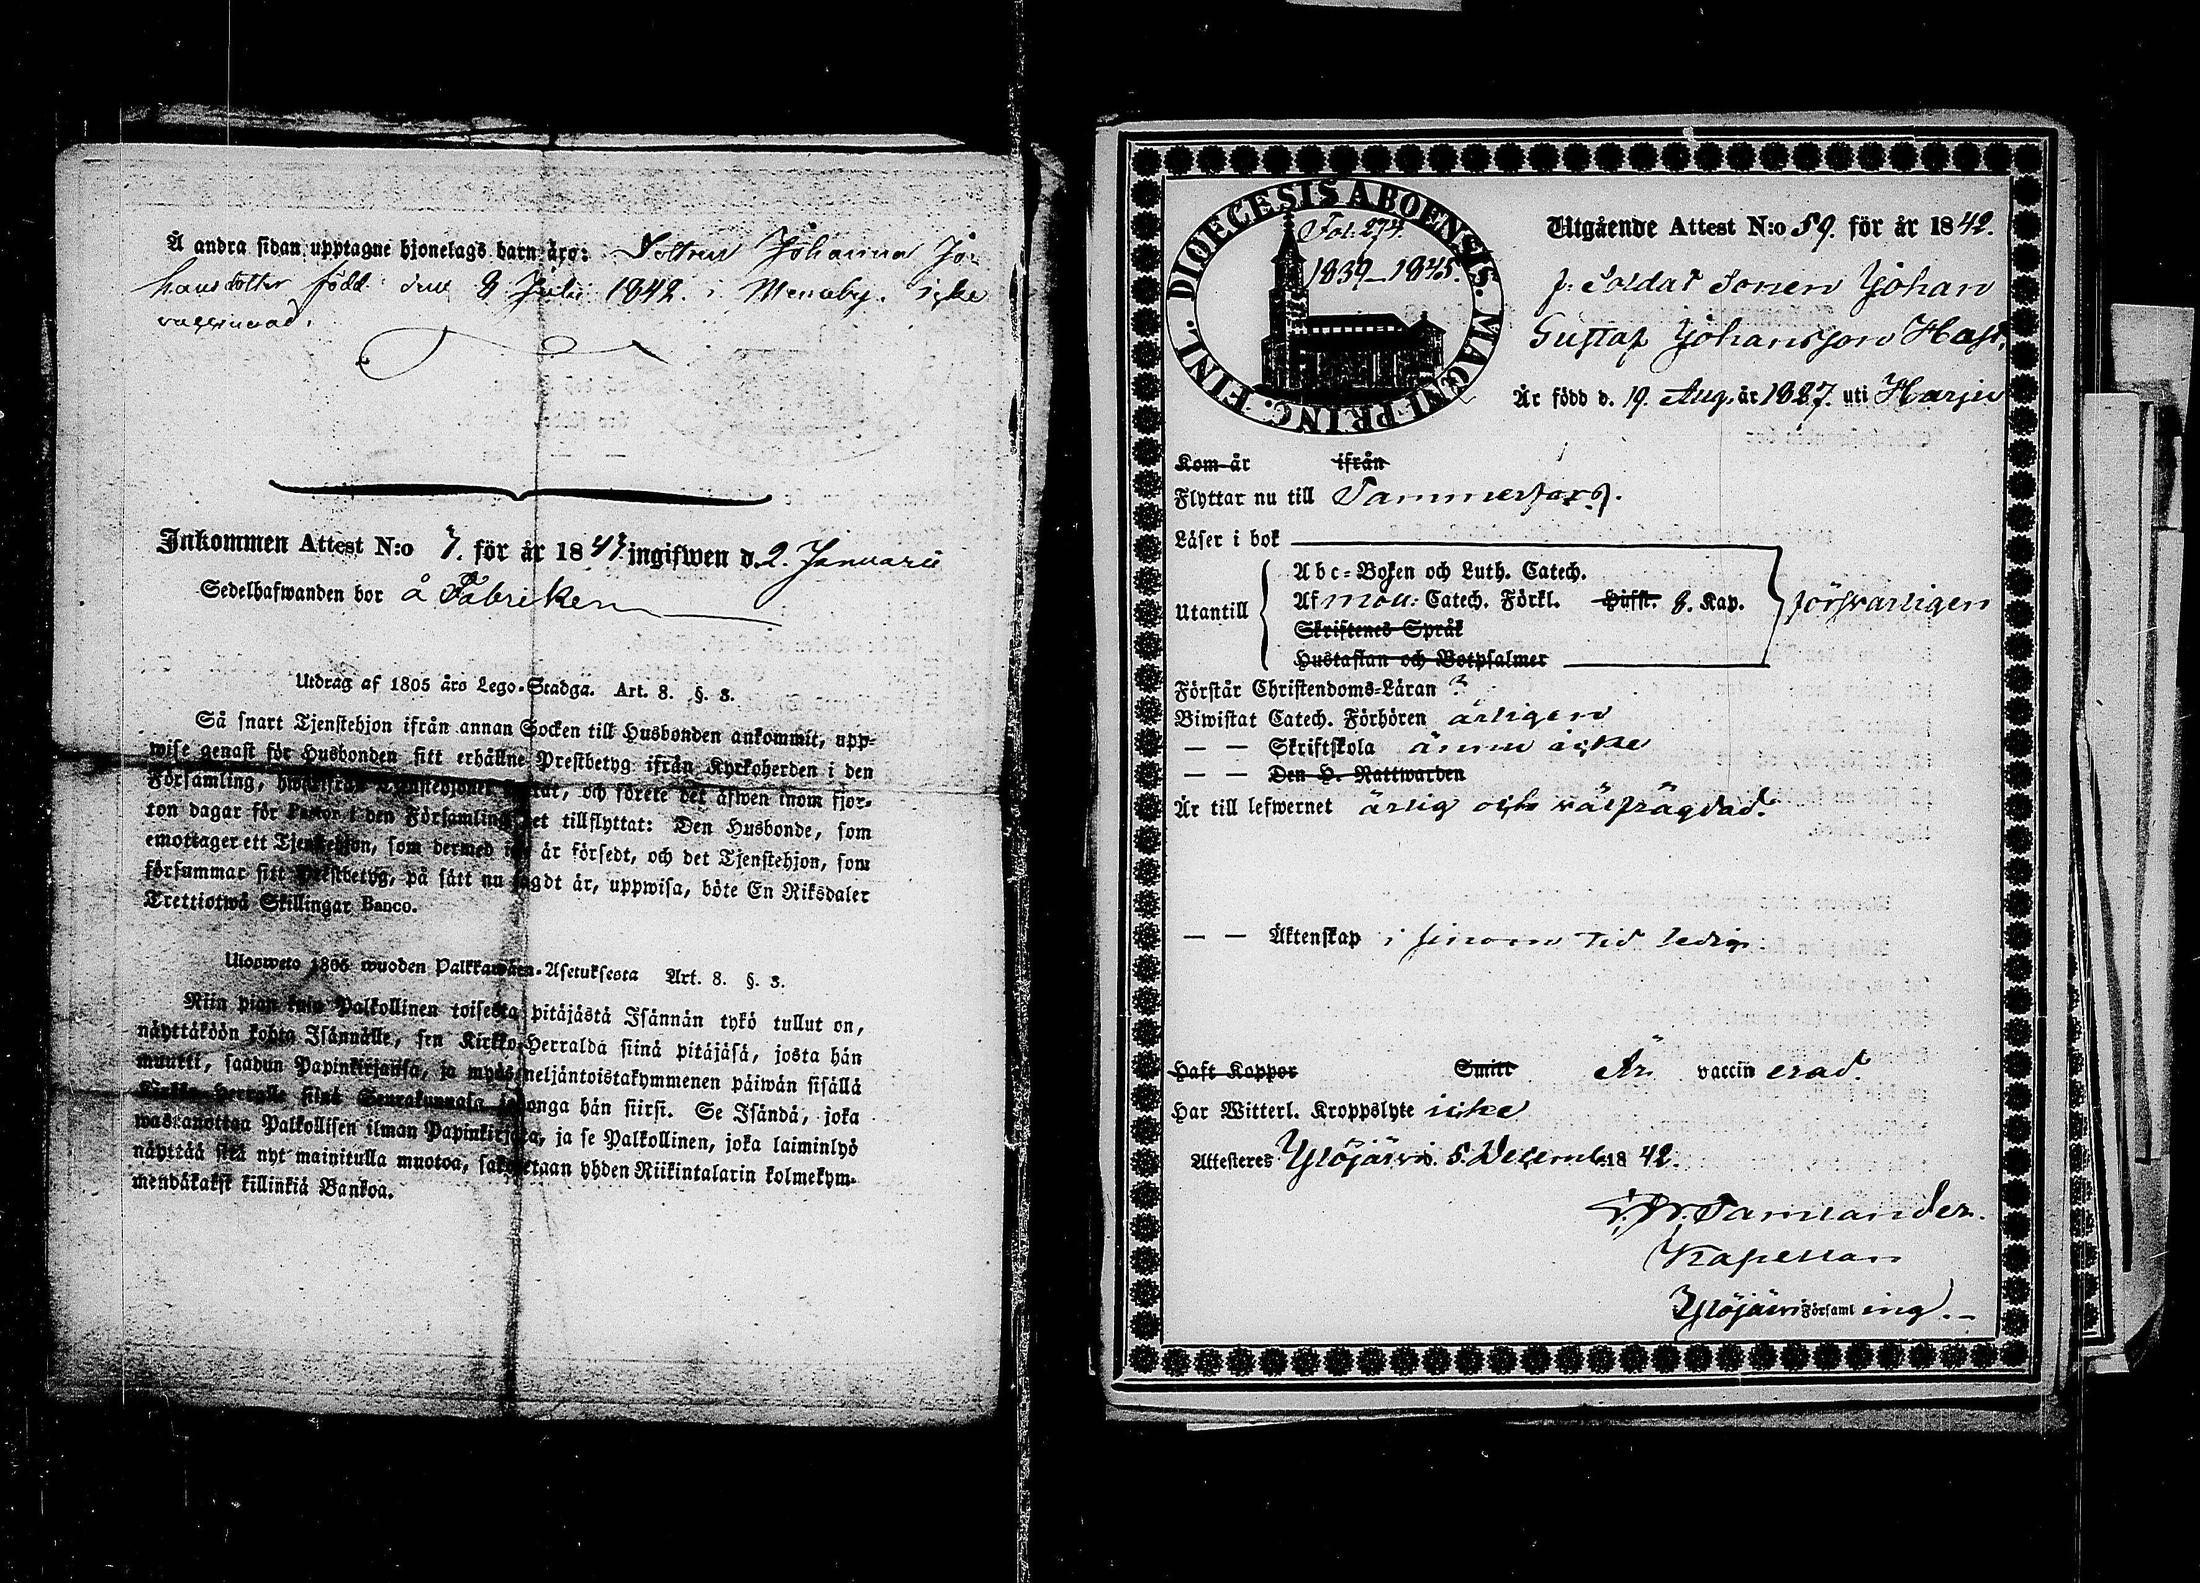 Å andra sidan upptagne hjonelags barn äro: Dottren Johanna Jo-
hansdotter född den 8 Julii 1842. i Messuby. icke
vaccinerad.
Inkommen Attest N:o 7. för år 1843 ingifwen d. 2. Januarii
Sedelhafwanden bor å Fabriken
Utdrag af 1805 års Lego-Stadga. Art. 8. §. 3.
Så snart Tjenstehjon ifrån annan Socken till Husbonden ankommit, upp-
wise genast för Husbonden sitt erhållne Prestbetyg ifrån Kyrkoherden i den
Församling, hwarifrån Tjenstehjonet flyttat, och förete det äfwen inom fjor-
ton dagar för Pastor i den Församling det tillflyttat: Den Husbonde, som
emottager ett Tjenstehjon, som dermed icke är försedt, och det Tjenstehjon, som
försummar sitt Prestbetyg, på sätt nu sagdt är, uppwisa, böte En Riksdaler
Trettiotwå Skillingar Banco.
Ulosweto 1805 wuoden Palkkawäen-Asetuksesta Art. 8. §. 3.
Niin pian kuin Palkollinen toisesta pitäjästä Isännän tykö tullut on,
näyttäköön kohta Isännälle, sen Kirkko-Herralda siinä pitäjäsä, josta hän
muutti, saadun Papinkirjansa, ja myös neljäntoistakymmenen päiwän sisällä
Kirkko-Herralle siinä Seurakunnasa johonga hän siirsi. Se Isändä, joka
wastanottaa Palkollisen ilman Papinkirjata, ja se Palkollinen, joka laiminlyö
näyttää sitä nyt mainitulla muotoa, sakotetaan yhden Riikintalarin kolmekym-
mendäkaksi killinkiä Bankoa.
DIOECESIS ABOENSIS. MAGNI PRINC. FINL.
Fol. 274.
1839–1845.
Utgående Attest N:o 59. för år 1842.
f: Soldat Sonen Johan
Gustaf Johansson Hast,
Är född d. 19. Aug. år 1827. uti Harju
Kom år ifrån
Flyttar nu till Tammerfors.
Läser i bok
Utantill
Abc-Boken och Luth. Catech.
Af Möll: Catech. Förkl. Hufst. 8. Kap.
Skriftenes Språk
Hustaflan och Botpsalmer
försvarligen
Förstår Christendoms-Läran ?
Biwistat Catech. Förhören årligen
— — Skriftskola ännu icke
— — Den H. Nattwarden
Är till lefwernet ärlig och välfrägdad.
— — Äktenskap i sinom tid ledig
Haft Koppor Smitt Är vaccinerad.
Har Witterl. Kroppslyte icke
Attesteras Ylöjärvi d. 5 Decemb. 1842.
Tamlander.
Kapellan
Ylöjärvi Församling.